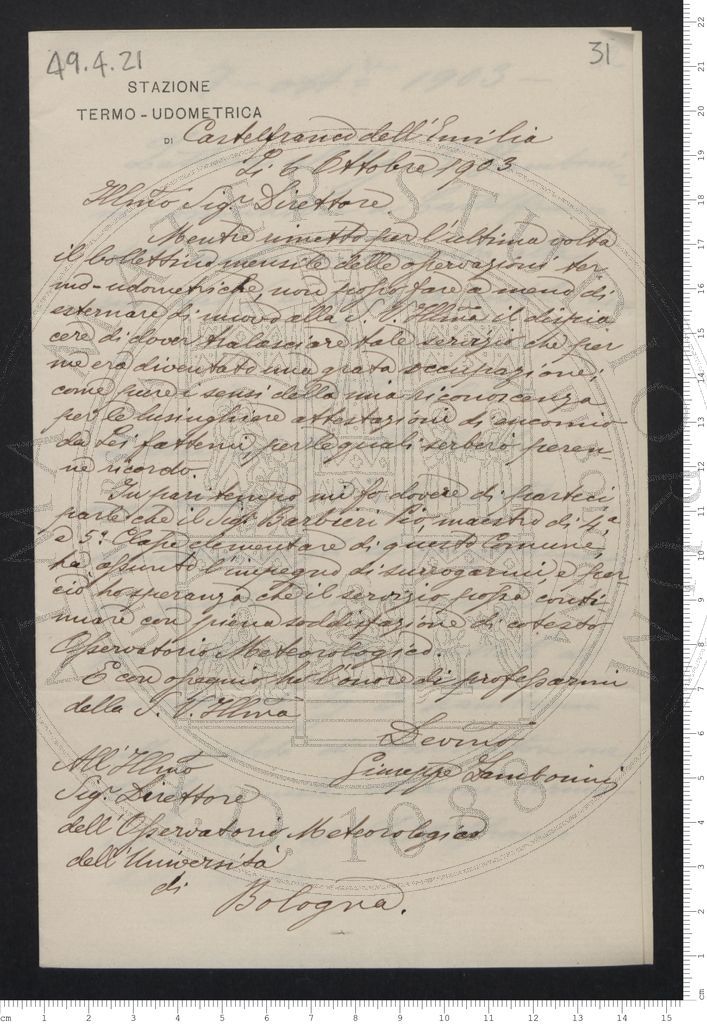 49.4.21
31
STAZIONE
TERMO-UDOMETRICA
DI Castelfranco dell'Emilia
Li 6 Ottobre 1903
Illmo Sigr Direttore
Mentre rimetto per l'ultima volta
il bollettino mensile delle osservazioni ter
mo-udometriche, non posso fare a meno di
esternare di nuovo alla S. V. Illma il dispia
cere di dover tralasciare tale servizio che per
me era diventato una grata occupazione;
come pure i sensi della mia riconoscenza
per le lusinghiere attestazioni di encomio
da Lei fattemi, per le quali serberò peren-
ne ricordo.
In pari tempo mi fo dovere di parteci
parle che il Sigr Barbieri Pio, maestro di 4a
e 5a Classe elementare di questo Comune,
ha assunto l'impegno di surrogarmi e per
ciò ho speranza che il servizio possa conti
nuare con piena soddisfazione di cotesto
Osservatorio Meteorologico.
E con ossequio ho l'onore di professarmi
della S. V. Illma
Devmo
Giuseppe Zambonini
All'Illmo
Sigr Direttore
dell'Osservatorio Meteorologico
dell'Università
di
Bologna.